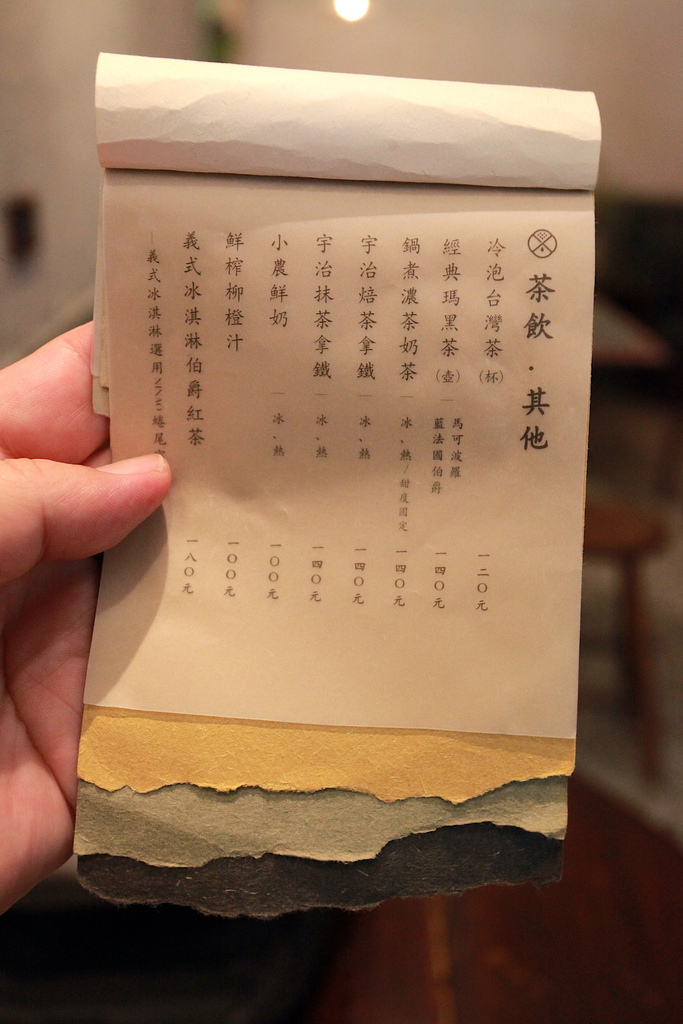 茶飲．其他
冷泡台灣茶（杯） 一二〇元
經典瑪黑茶（壺）— 馬可波羅
藍法國伯爵 一四〇元
鍋煮濃茶奶茶 — 冰、熱／甜度固定 一四〇元
宇治焙茶拿鐵 — 冰、熱 一四〇元
宇治抹茶拿鐵 — 冰、熱 一四〇元
小農鮮奶 — 冰、熱 一〇〇元
鮮榨柳橙汁 一〇〇元
義式冰淇淋伯爵紅茶 一八〇元
—義式冰淇淋選用 捲尾